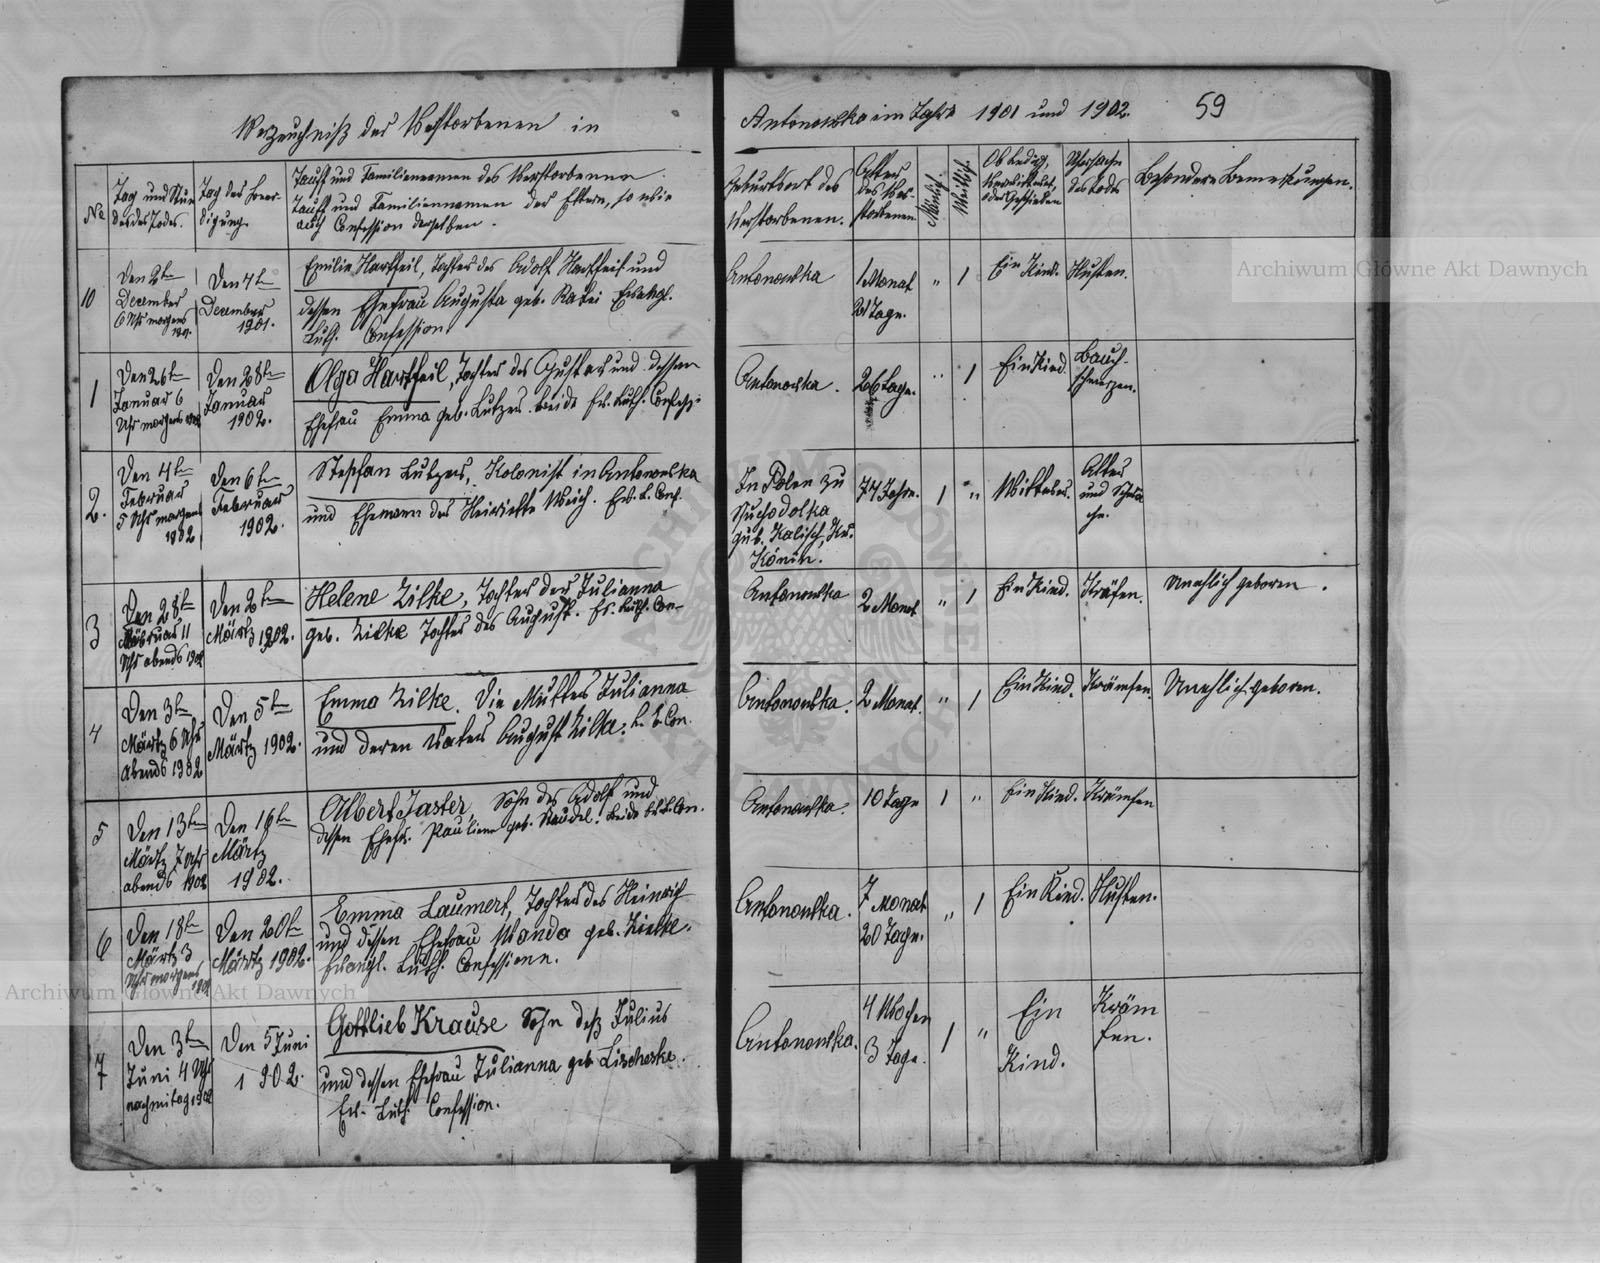 Verzeuchniß der Verstorbenen in
Antonowka im Jahre 1901 und 1902.
59
№
Tag und Stun
de des Todes.
Tag der Beer-
digung.
Tauf und Familiennamen des Verstorbenen.
Tauf und Familiennamen der Eltern, so wie
auch Confession derselben.
Geburtsort des
Verstorbenen.
Alter
des Ver-
storbenen
Männlich.
Weiblich.
Ob Ledig,
Verheirathet,
oder Geschieden
Uhrsache
des Todes
Besondere Bemerkungen.
10
Den 2ten
December
6 Uhr morgens
1901.
Den 4ten
December
1901.
Emilie Hartfeil, Tochter des Adolf Hartfeil und
dessen Ehefrau Augusta geb. Ratei Evangl.
Luth. Confession
Antonowka
1 Monat
21 Tage.
"
1
Ein Kind.
Husten.
1
Den 26ten
Januar 6
Uhr morgens 1902
Den 28ten
Januar
1902.
Olga Hartfeil, Tochter des Gustav und dessen
Ehefrau Emma geb. Lutzer. beide Ev. Luth. Confess.
Antonowka.
26 Tage.
"
1
Ein Kind.
Bauch-
schmerzen.
2.
Den 4ten
Februar
5 Uhr morgens
1902
Den 6ten
Februar
1902.
Stephan Lutzer, Kolonist in Antonowka
und Ehemann der Heiriette Weich. Ev. L. Conf.
In Polen zu
Suchodolka
gub. Kalisch, Kr.
Könin.
77 Jahre.
1
"
Wittwer.
Alter
und Schwä
che.
3
Den 28ten
Februar 11
Uhr abends 1902
Den 2ten
Märtz 1902.
Helene Zilke, Tochter der Julianna
geb. Zilke Tochter des August. Ev. Luth. Con-
Antonowka
2 Monat
"
1
Ein Kind.
Kräfen.
Unehlich geboren.
4
Den 3ten
Märtz 6 Uhr
abends 1902
Den 5ten
Märtz 1902.
Emma Zilke. Die Mutter Julianna
und deren Vater August Zilke. E. L. Con.
Antonowka.
2 Monat.
"
1
Ein Kind.
Krämfen.
Unehlich geboren.
5
Den 13ten
Märtz 7 Uhr
abends 1902
Den 16ten
Märtz
1902.
Albert Jaster, Sohn des Adolf und
dessen Ehefr. Pauline geb. Raudel. beide Ev. L. Con.
Antonowka.
10 Tage
1
"
Ein Kind.
Krämfen
6
Den 18ten
Märtz 3
Uhr morgens
1902
Den 20ten
Märtz 1902.
Emma Laumert, Tochter des Heinrich
und dessen Ehefrau Wanda geb. Zielke.
Evangl. Luth. Confessionn.
Antonowka.
7 Monat
20 Tage.
"
1
Ein Kind.
Husten.
7
Den 3ten
Juni 4 Uhr
nachmitag 1902
Den 5 Juni
1902.
Gottlieb Krause Sohn deß Julius
und dessen Ehefrau Julianna geb. Lischewske.
Ev. Luth. Confession.
Antonowka.
4 Wochen
3 Tage.
1
"
Ein
Kind.
Kräm
fen.
Archiwum Główne Akt Dawnych
Archiwum Główne Akt Dawnych